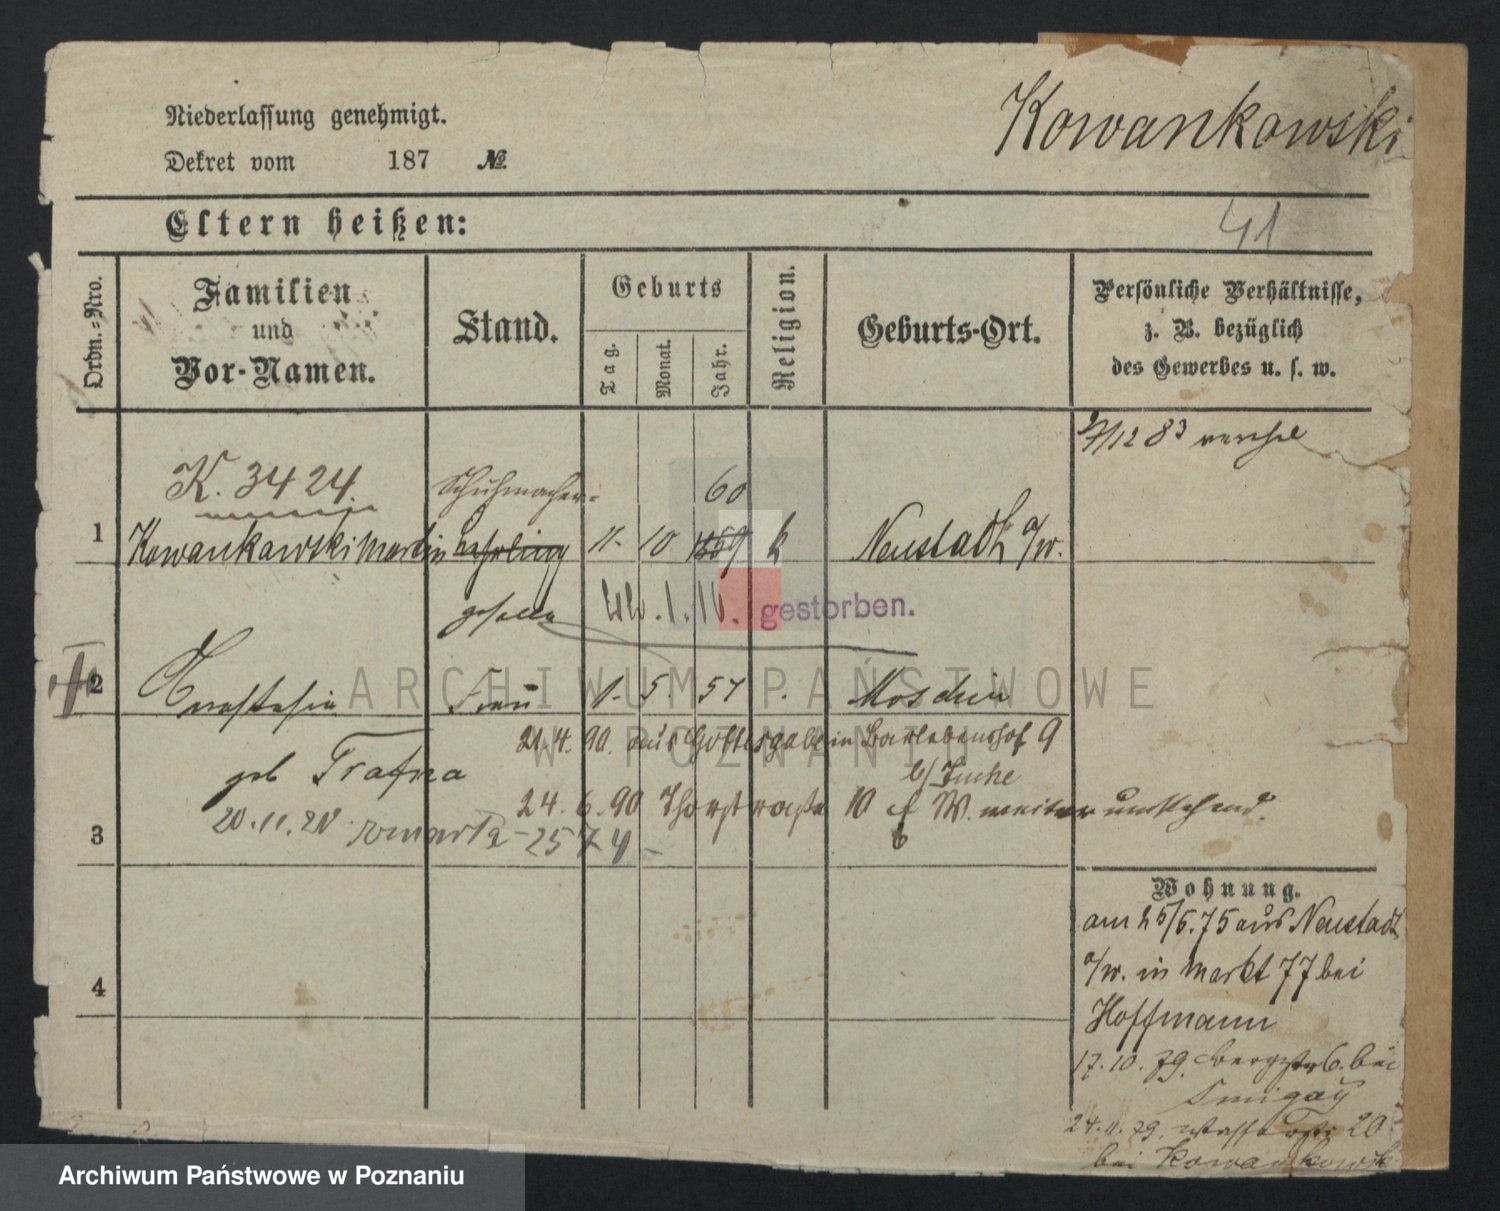 Niederlassung genehmigt.
Dekret vom 187 №
Kowankowski
Eltern heißen:
41
Ordn.-Nro.
Familien
und
Vor-Namen.
Stand.
Geburts
Tag.
Monat.
Jahr.
Religion.
Geburts-Ort.
Persönliche Verhältnisse,
z. B. bezüglich
des Gewerbes u. s. w.
/12 83
K. 3424.
Schuhmacher-
60
1 Kowankawski Martin Lehrling 11. 10 1859 k Neustadt a/W.
geselle
gestorben.
2 Anastasia Frau 1. 5. 57 . Moschin
ARCHIWUM PAŃSTWOWE
W POZNANIU
21.4. 90. aus Gottesgabe in Barlebenshof 9
geb Trafna
b/ Zuche
24. 6. 90 Thorstraße 10 W. weiter umstehend.
20.11.20
3
4
Wohnung.
am 25/6.75 aus Neustadt
a/W. in Markt 77 bei
Hoffmann
17. 10. 79. Bergstr 6. bei
Smigay
24. 11. 79. 20
bei Kowankowski
Archiwum Państwowe w Poznaniu